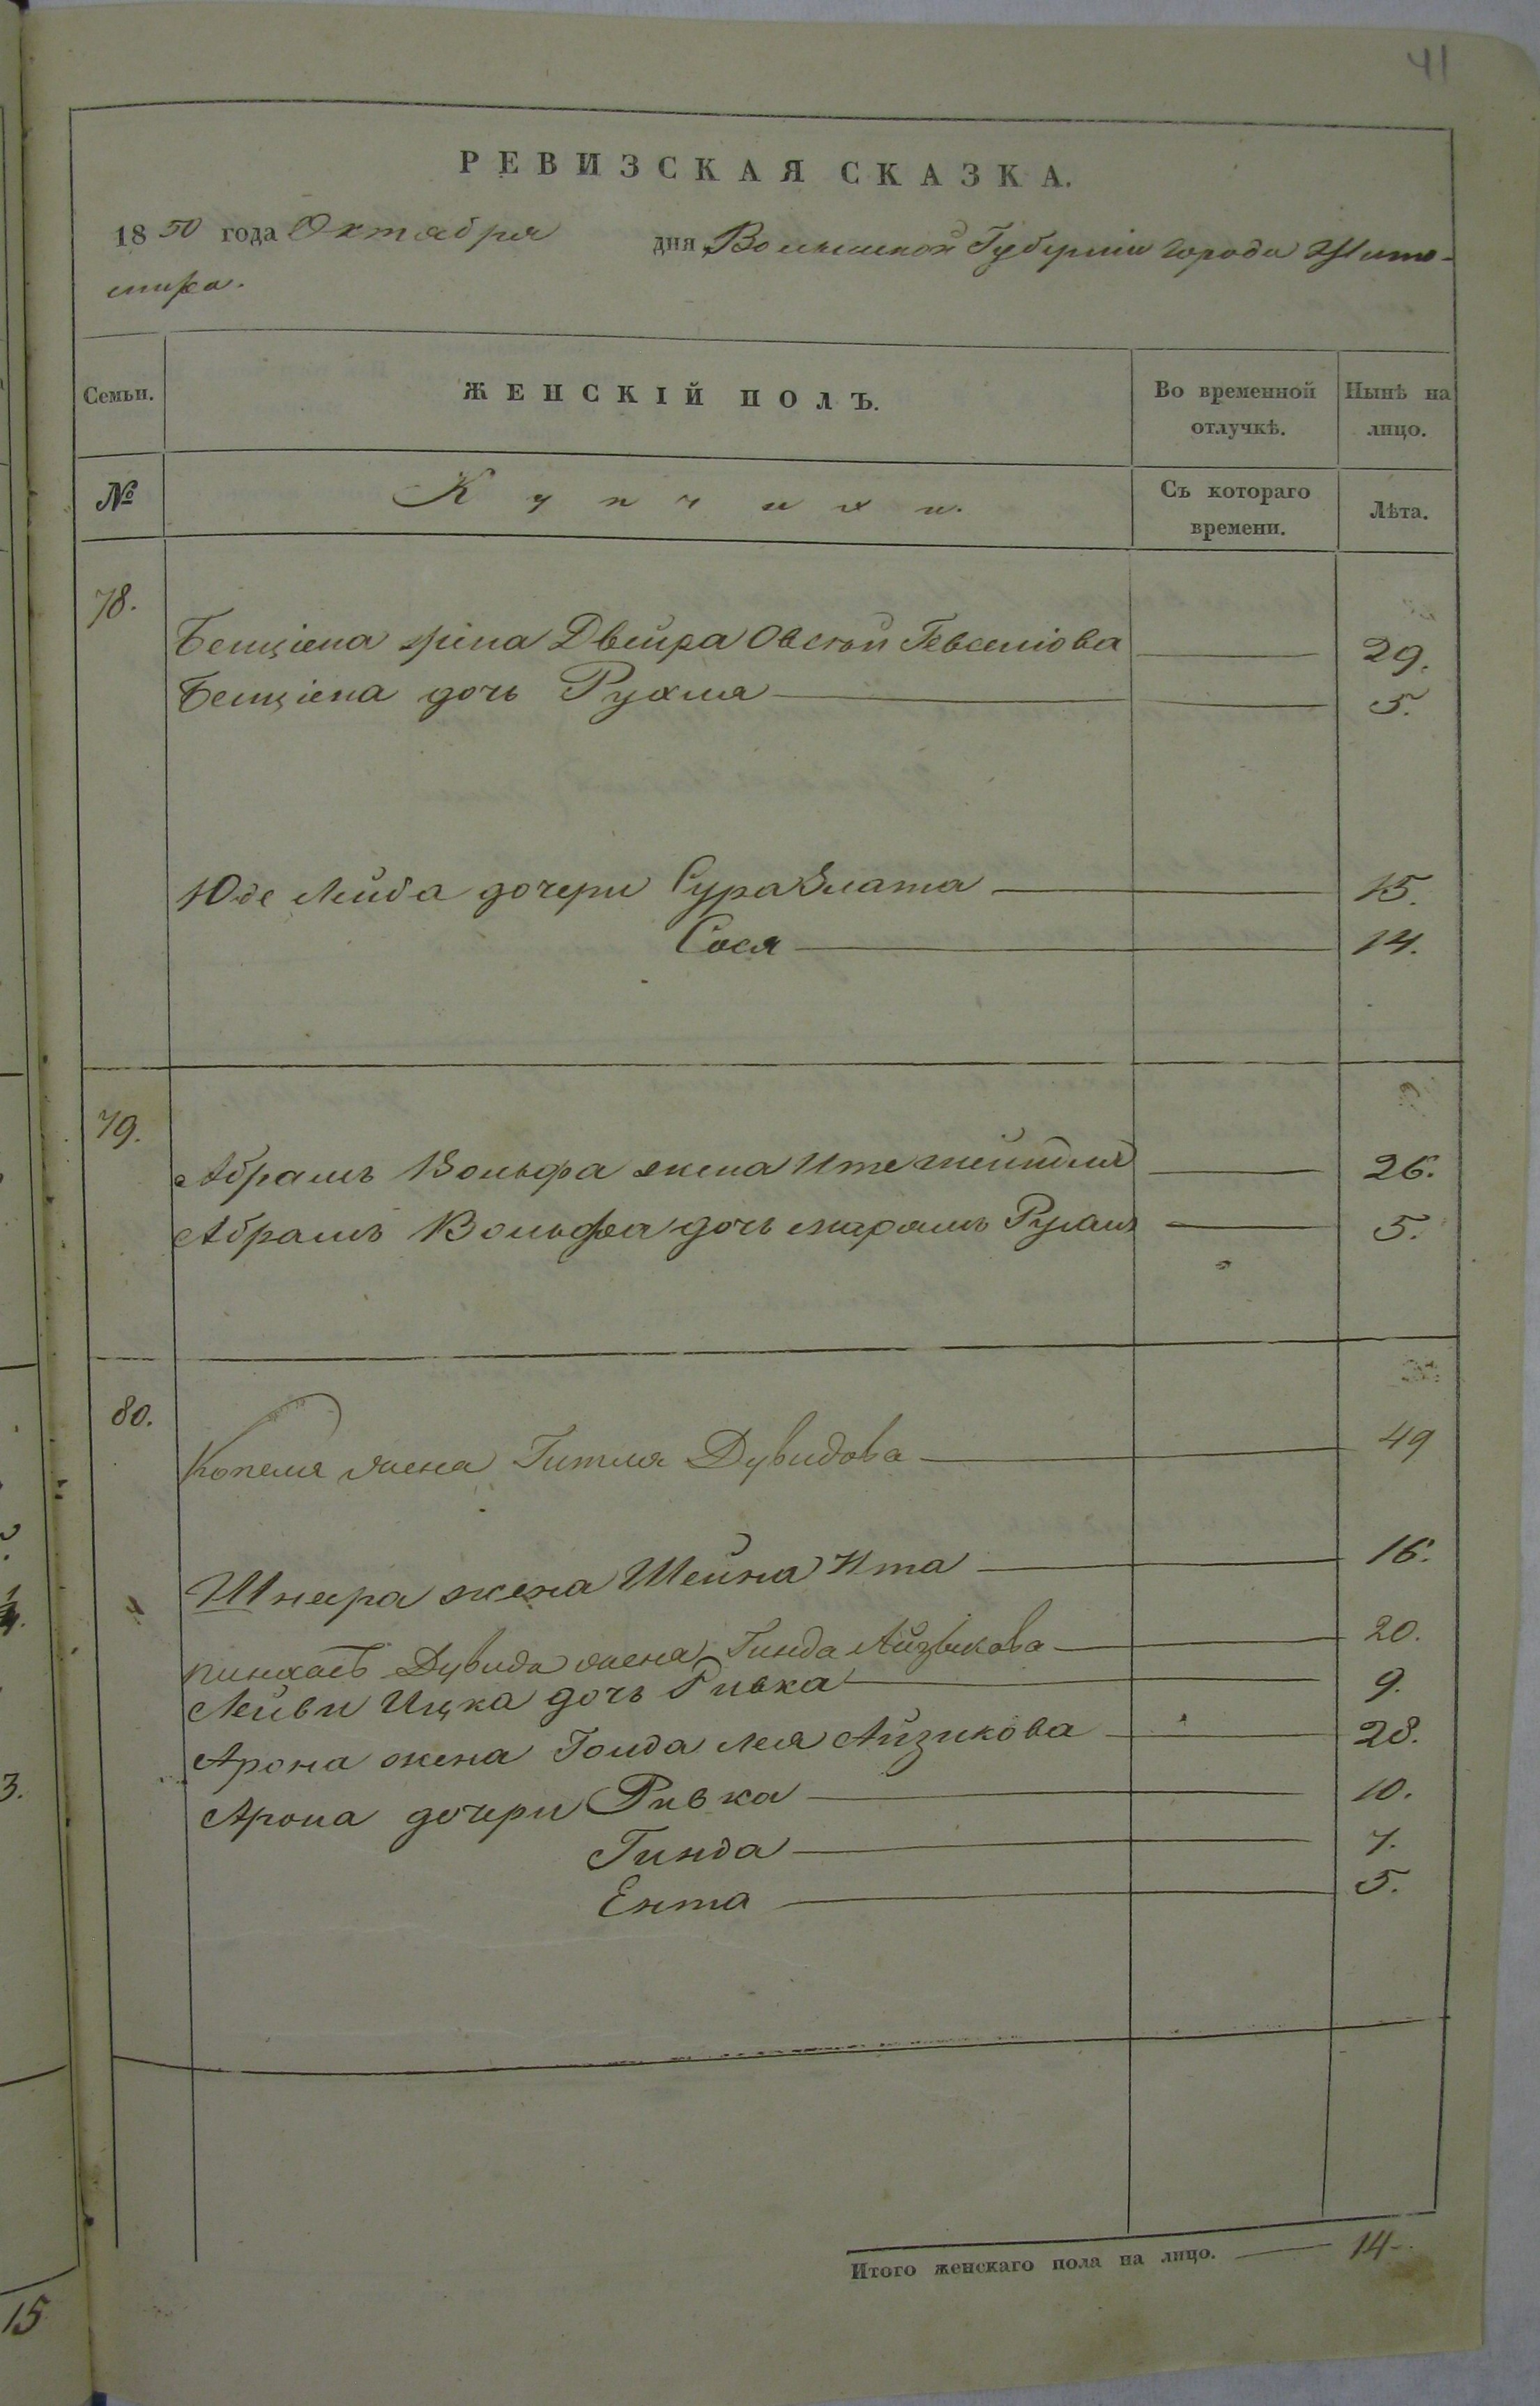 41
РЕВИЗСКАЯ СКАЗКА.
1850 года Октября дня Волынской Губерніи города Жито-
мира.
Семьи. ЖЕНСКІЙ ПОЛЪ. Во временной отлучкѣ. Нынѣ на лицо.
№ Купчихи. Съ котораго времени. Лѣта.
78.
Бенціена жена Двейра Овсѣй 29.
Бенціена дочь Рухля 5.
Юде Лейба дочери Сура Злата 15.
Сося 14.
79.
Абрамъ Вольфа жена Ите 26.
Абрамъ Вольфа дочь 5.
80.
Копеля жена Гитля Дувидова 49
Шнеера жена Шейна Ита 16.
Пинхасъ Дувида жена Гинда Айзыкова 20.
Лейви Ицка дочь Ривка 9.
Арона жена Голда Лея Айзикова 28.
Арона дочери Ривка 10.
Гинда 7.
Ента 5.
Итого женскаго пола на лицо. 14
3.
15